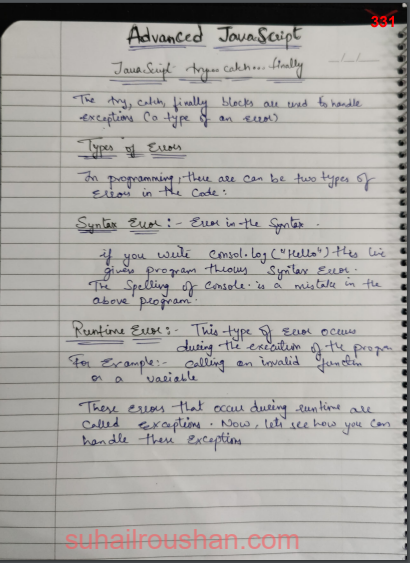 331
Advanced JavaScript
JavaScript try... catch... finally
The try, catch, finally blocks are used to handle
exceptions (a type of an error)
Types of Errors
In programming, there are can be two types of
Errors in the Code:
Syntax Error:- Error in the Syntax.
if you write consol.log("Hello") this line
given program throws Syntax Error.
The Spelling of Console. is a mistake in the
above program.
Runtime Error:- This type of Error occurs
during the execution of the program
For Example:- calling an invalid function
or a variable
These Errors that occur during runtime are
called exceptions. Now, lets see how you can
handle these exceptions
suhailroushan.com